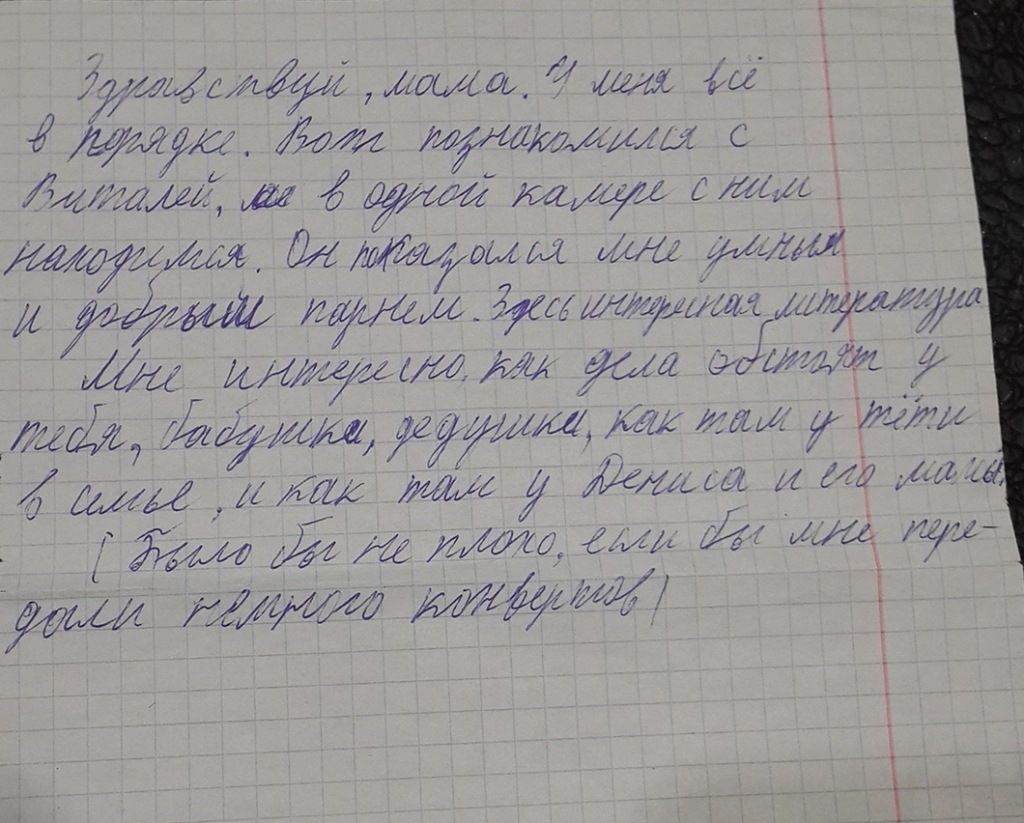 Здравствуй, мама. У меня всё
в порядке. Вот познакомился с
Виталей, в одной камере с ним
находимся. Он показался мне умным
и добрым парнем. Здесь интересная литература
Мне интересно, как дела обстоят у
тебя, бабушки, дедушки, как там у тёти
в семье, и как там у Дениса и его мамы.
(Было бы не плохо, если бы мне пере-
дали немного конвертов)